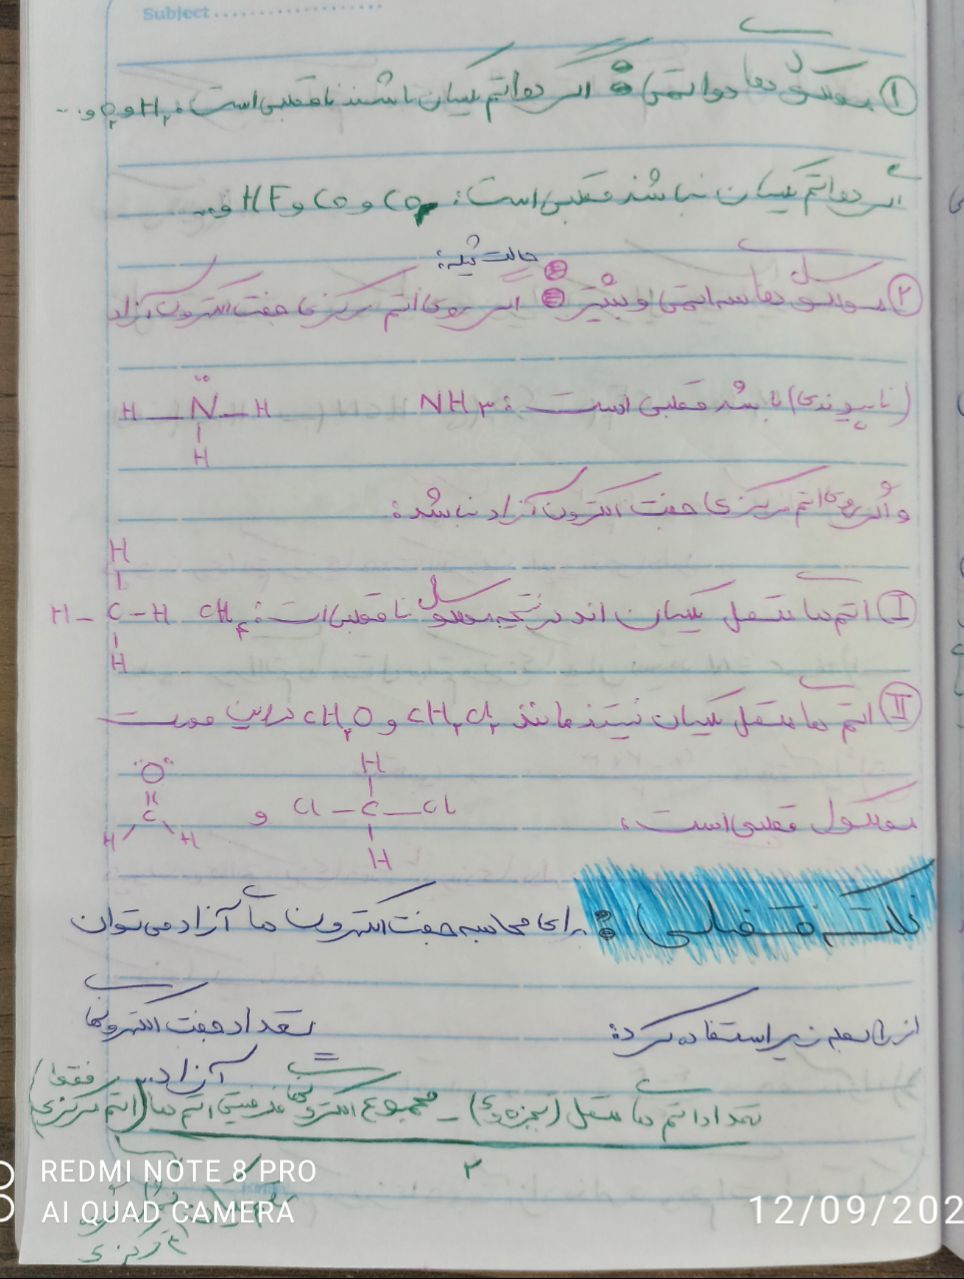 Subject
① مولکول های دو اتمی: اگر دو اتم یکسان باشند ناقطبی است: H₂ و O₂ و ...
اگر دو اتم یکسان نباشند قطبی است: CO و CO و HF و ...
حالت کلی:
② مولکول های سه اتمی و بیشتر: اگر روی اتم مرکزی جفت الکترون آزاد
(ناپیوندی) باشد قطبی است: NH₃
H — N — H
H
و اگر روی اتم مرکزی جفت الکترون آزاد نباشد:
H
Ⅰ اتم های متصل یکسان اند در نتیجه مولکول ناقطبی است: CH₄ H – C – H
H
Ⅱ اتم های متصل یکسان نیستند مانند CH₂Cl₂ و CH₂O در این صورت
مولکول قطبی است.
H
Cl – C – Cl
H
و
O
C
H H
نکته قفلی: برای محاسبه جفت الکترون های آزاد می توان
از رابطه زیر استفاده کرد:
تعداد جفت الکترون های آزاد
=
تعداد اتم های متصل (بجز H) – مجموع الکترون های ظرفیتی اتم ها (فقط اتم مرکزی)
۲
مرکزی
REDMI NOTE 8 PRO
AI QUAD CAMERA
12/09/202